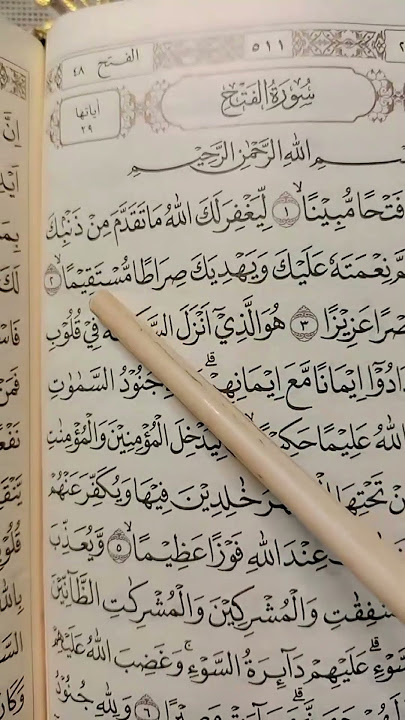 ٥١١ الفتح ٤٨
سُورَةُ الْفَتْحِ
اٰيَاتُهَا ٢٩
اللّٰهِ الرَّحْمٰنِ الرَّحِيمِ
فَتْحًا مُّبِيْنًاۙ ١ لِّيَغْفِرَ لَكَ اللّٰهُ مَا تَقَدَّمَ مِنْ ذَنْۢبِكَ
نِعْمَتَهٗ عَلَيْكَ وَيَهْدِيَكَ صِرَاطًا مُّسْتَقِيْمًاۙ ٢
عَزِيْزًا ٣ هُوَ الَّذِيْٓ اَنْزَلَ فِيْ قُلُوْبِ
اِيْمَانًا مَّعَ اِيْمَانِهِمْۗ جُنُوْدُ السَّمٰوٰتِ
اللّٰهُ عَلِيْمًا حَكِيْمًاۙ لِّيُدْخِلَ الْمُؤْمِنِيْنَ وَالْمُؤْمِنٰتِ
تَحْتِهَا خٰلِدِيْنَ فِيْهَا وَيُكَفِّرَ عَنْهُمْ
عِنْدَ اللّٰهِ فَوْزًا عَظِيْمًاۙ ٥ وَّيُعَذِّبَ
وَالْمُشْرِكِيْنَ وَالْمُشْرِكٰتِ الظَّاۤنِّيْنَ
السَّوْءِۗ عَلَيْهِمْ دَاۤىِٕرَةُ السَّوْءِۚ وَغَضِبَ اللّٰهُ عَلَيْهِمْ
٦ وَلِلّٰهِ جُنُوْدُ